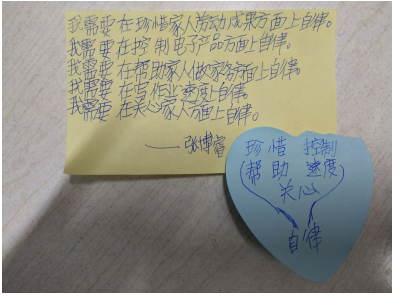 我需要在珍惜家人劳动成果方面上自律。
我需要在控制电子产品方面上自律。
我需要在帮助家人做家务方面上自律。
我需要在写作业速度上自律。
我需要在关心家人方面上自律。
——张博睿
珍惜 控制
帮助 速度
关心
自律